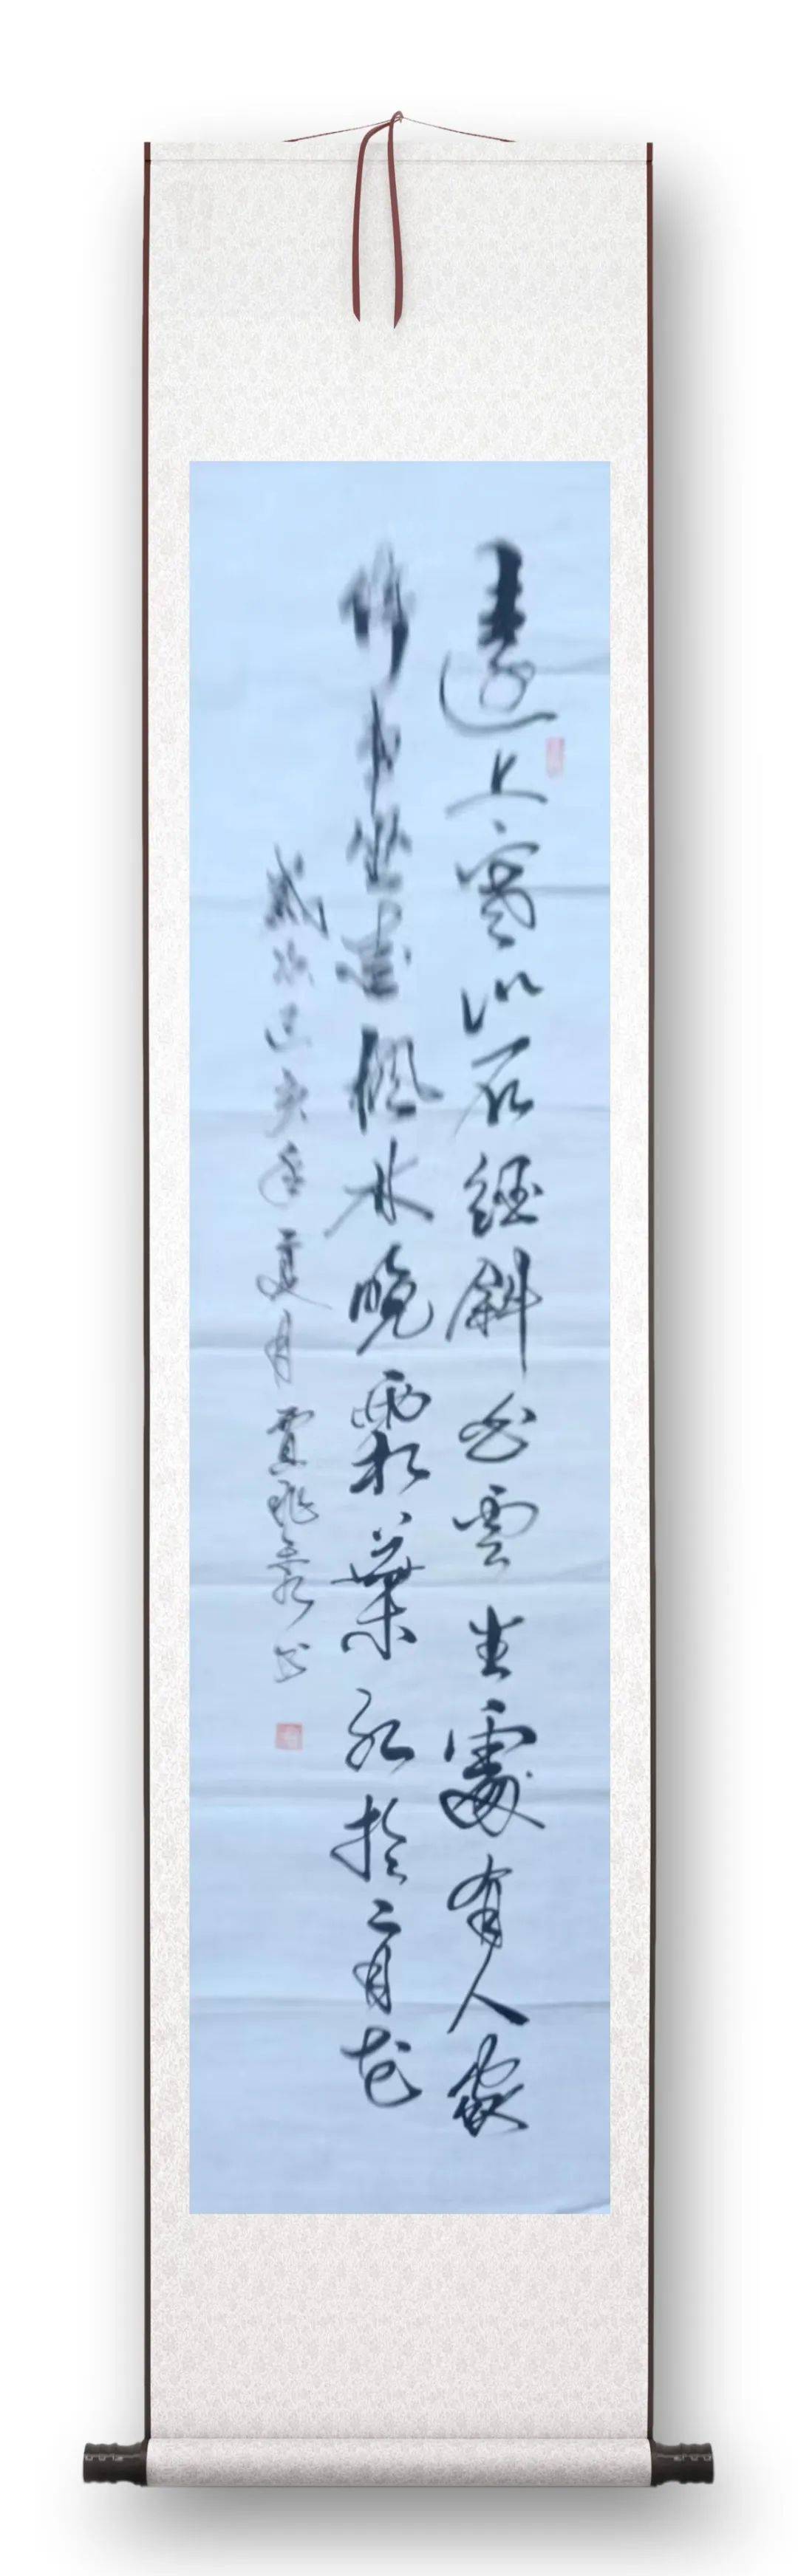 遠上寒山石徑斜白雲生處有人家
停車坐愛楓林晚霜葉紅於二月花
歲次己亥年夏月賈飛豪书